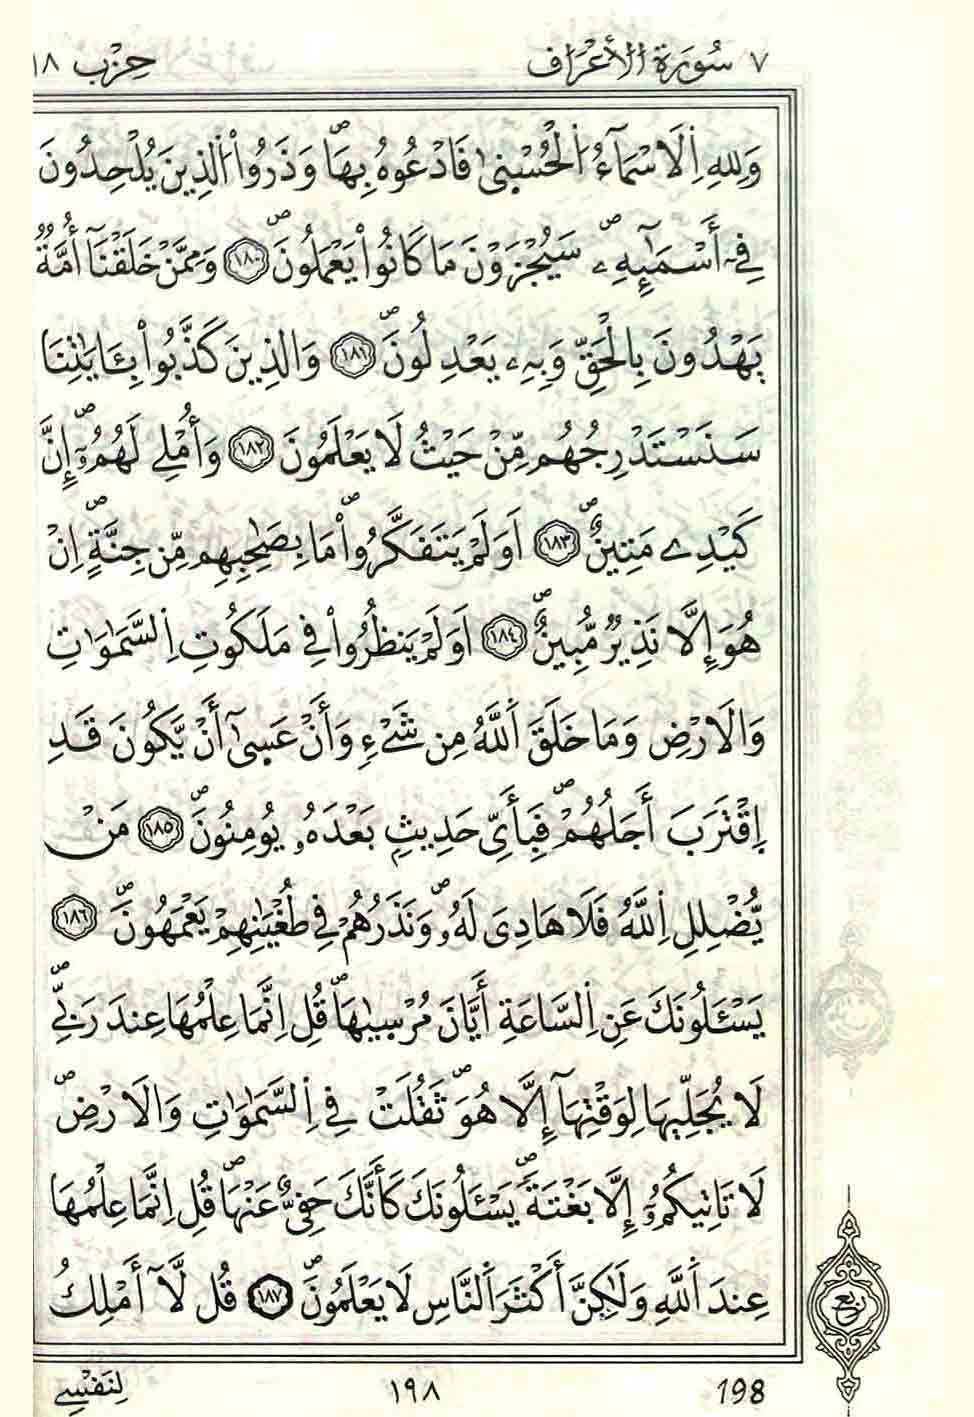 ٧ سُورَةُ الأَعْرَاف حِزْب ١٨
وَلِلهِ اِ۬لَاسْمَآءُ اُ۬لْحُسْن۪ىٰ فَادْعُوهُ بِهَاۖ وَذَرُواْ اُ۬لذِينَ يُلْحِدُونَ
فِےٓ أَسْمَٰٓئِهِۦۖ سَيُجْزَوْنَ مَا كَانُواْ يَعْمَلُونَۖ ١٨٠ وَمِمَّنْ خَلَقْنَآ أُمَّةٞ
يَهْدُونَ بِالْحَقِّ وَبِهِۦ يَعْدِلُونَۖ ١٨١ وَالذِينَ كَذَّبُواْ بِـَٔايَٰتِنَا
سَنَسْتَدْرِجُهُم مِّنْ حَيْثُ لَا يَعْلَمُونَ ١٨٢ وَأُمْلِے لَهُمُۥٓۖ إِنَّ
كَيْدِے مَتِينٌۖ ١٨٣ اَوَلَمْ يَتَفَكَّرُواْۖ مَا بِصَٰحِبِهِم مِّن جِنَّةٍۖ اِنْ
هُوَ إِلَّا نَذِيرٞ مُّبِينٌۖ ١٨٤ اَوَلَمْ يَنظُرُواْ فِے مَلَكُوتِ اِ۬لسَّمَٰوَٰتِ
وَالَارْضِ وَمَا خَلَقَ اَ۬للَّهُ مِن شَےْءٖ وَأَنْ عَس۪ىٰٓ أَنْ يَّكُونَ قَدِ
اِ۪قْتَرَبَ أَجَلُهُمْۖ فَبِأَيِّ حَدِيثِۢ بَعْدَهُۥ يُومِنُونَۖ ١٨٥ مَنْ
يُّضْلِلِ اِ۬للَّهُ فَلَا هَادِىَ لَهُۥۖ وَنَذَرُهُمْ فِے طُغْيَٰنِهِمْ يَعْمَهُونَۖ ١٨٦
يَسْـَٔلُونَكَ عَنِ اِ۬لسَّاعَةِ أَيَّانَ مُرْس۪ىٰهَاۖ قُلِ اِنَّمَا عِلْمُهَا عِندَ رَبِّےۖ
لَا يُجَلِّيهَا لِوَقْتِهَآ إِلَّا هُوَۖ ثَقُلَتْ فِے اِ۬لسَّمَٰوَٰتِ وَالَارْضِۖ
لَا تَاتِيكُمُۥٓ إِلَّا بَغْتَةٗۖ يَسْـَٔلُونَكَ كَأَنَّكَ حَفِيٌّ عَنْهَاۖ قُلِ اِنَّمَا عِلْمُهَا
عِندَ اَ۬للَّهِ وَلَٰكِنَّ أَكْثَرَ اَ۬لنَّاسِ لَا يَعْلَمُونَۖ ١٨٧ قُل لَّآ أَمْلِكُ
ربع
لِنَفْسِے ١٩٨ 198